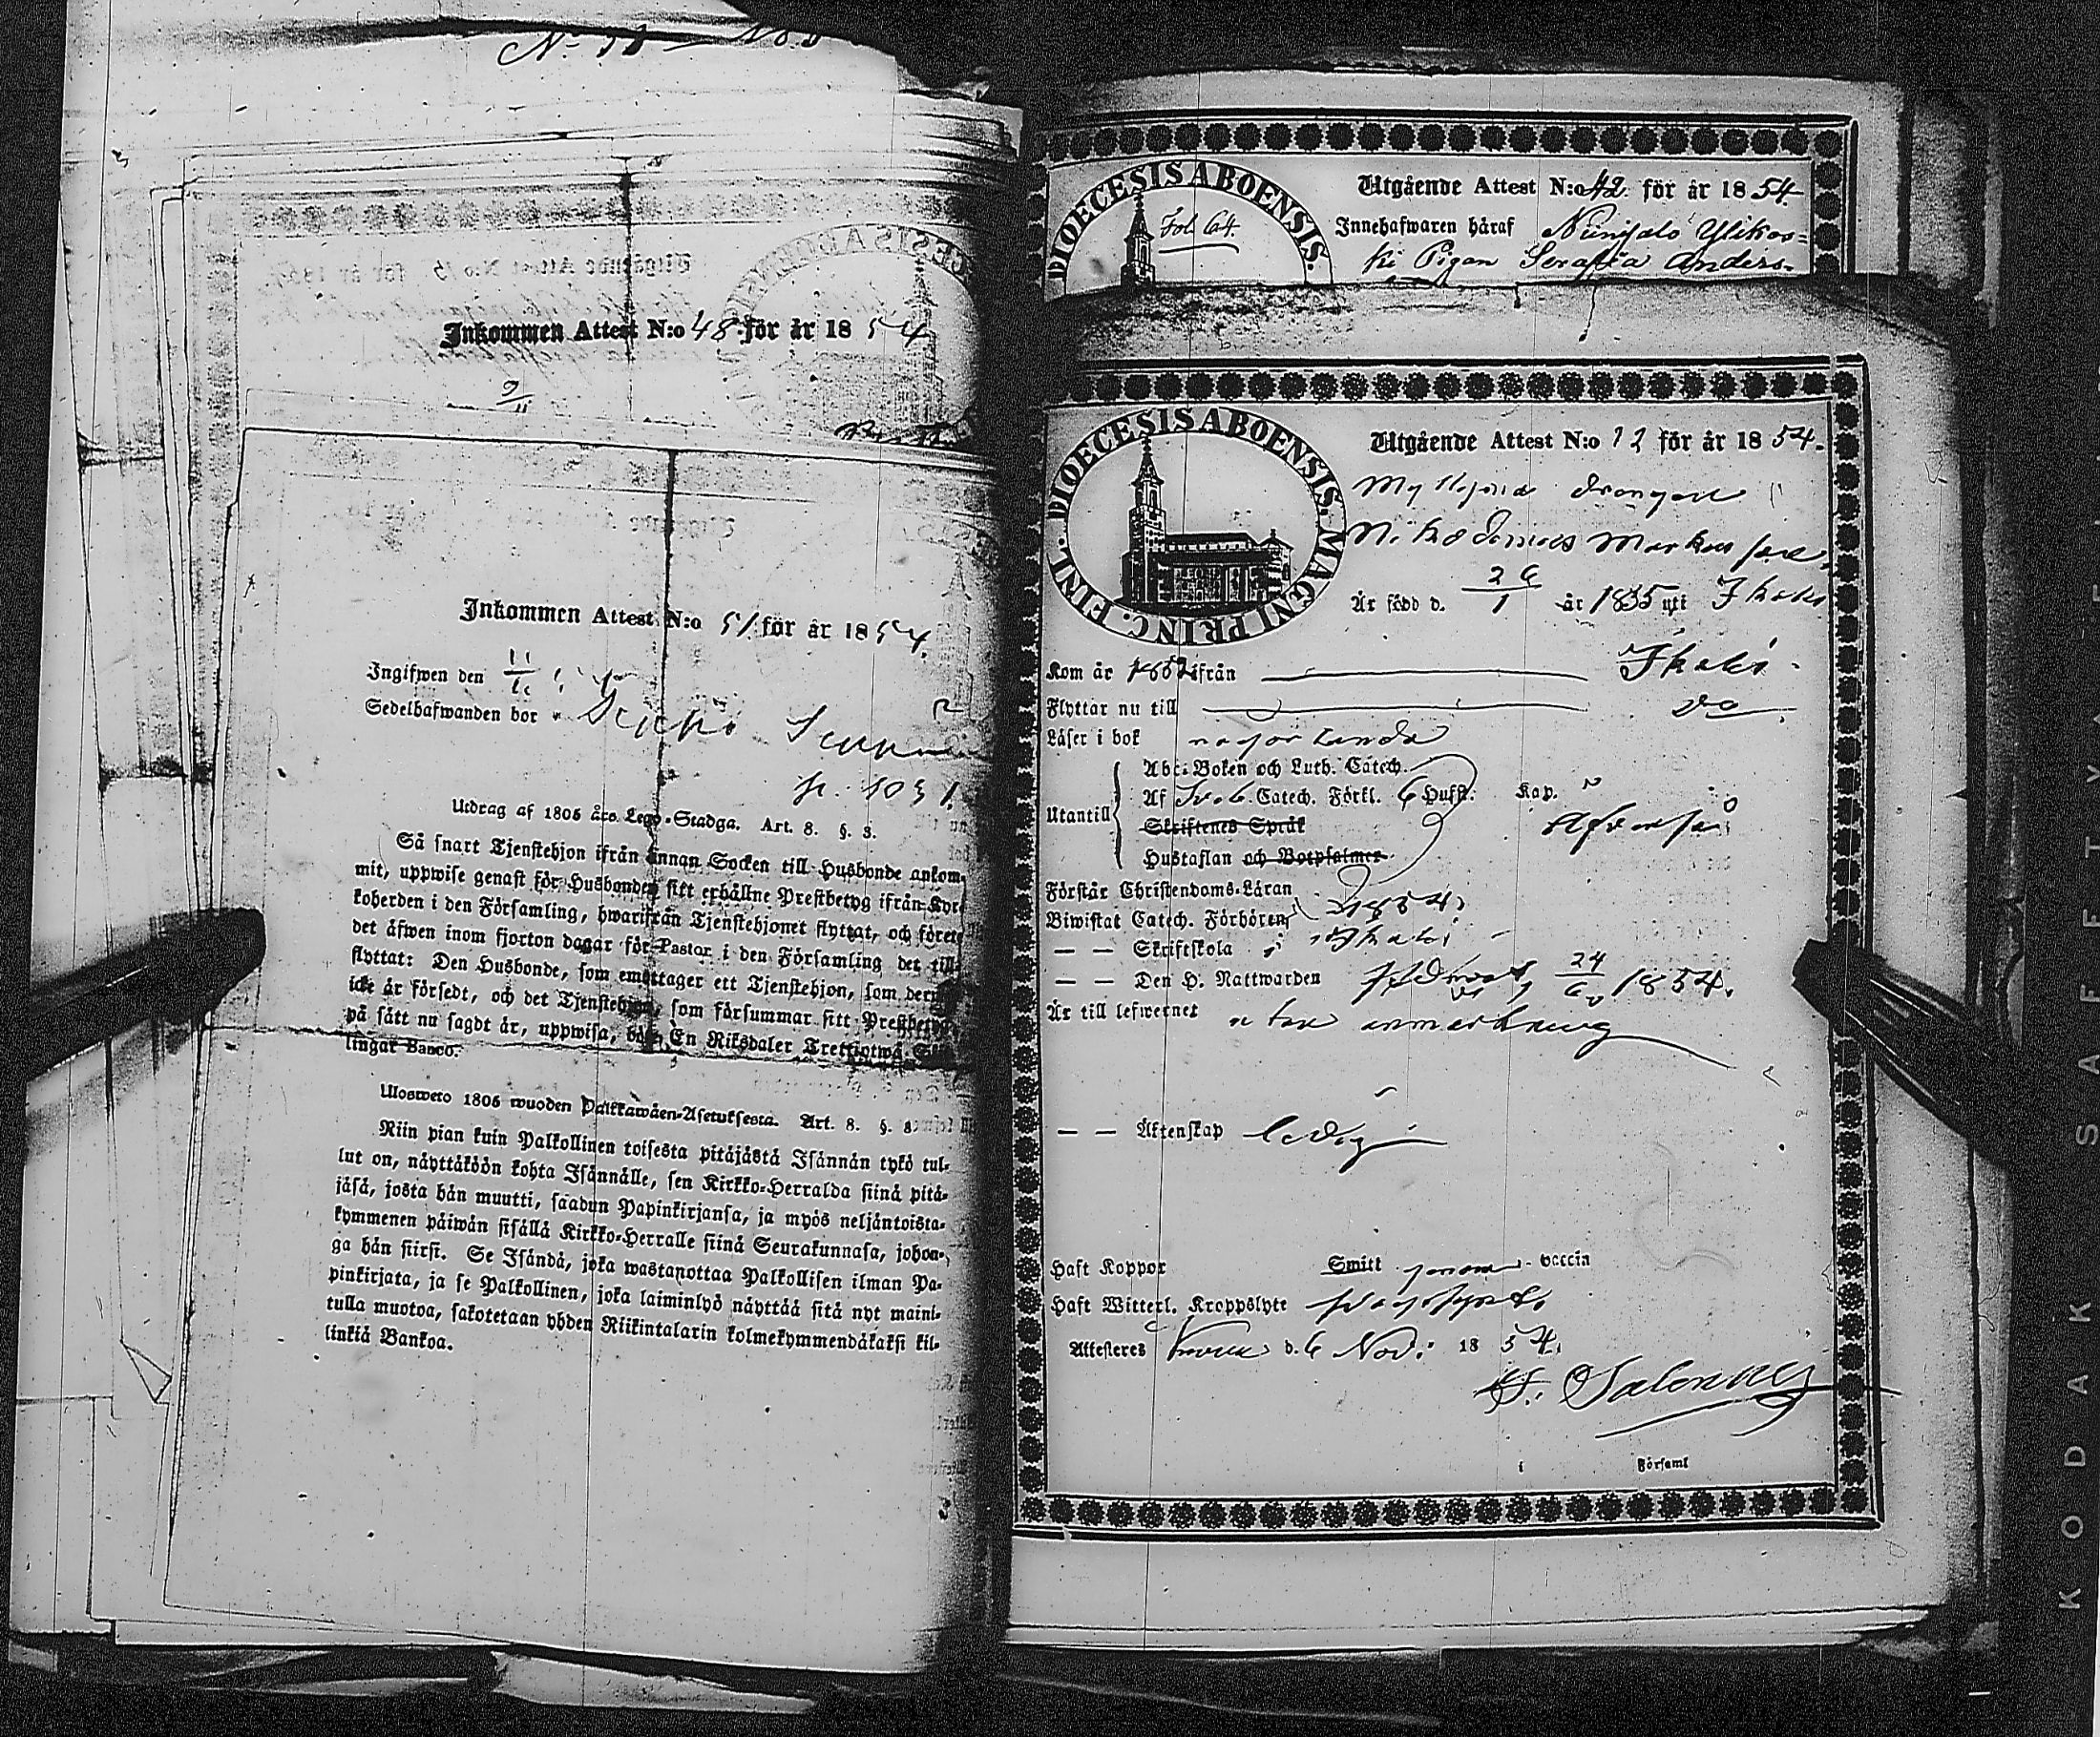 Inkommen Attest N:o 48 för år 1854
9/11
Inkommen Attest N:o 51 för år 1854.
Ingifwen den
Sedelhafwanden bor
p. 1031.
Utdrag af 1805 års Lego-Stadga. Art. 8. §. 8.
Så snart Tjenstehjon ifrån annan Socken till Husbonde ankom-
mit, uppwise genast för Husbonden sitt erhållne Prestbetyg ifrån Kyr-
koherden i den Församling, hwarifrån Tjenstehjonet flyttat, och förete
det äfwen inom fjorton dagar för Pastor i den Församling det till-
flyttat: Den Husbonde, som emottager ett Tjenstehjon, som dermed
icke är försedt, och det Tjenstehjon, som försummar sitt Prestbetyg
på sätt nu sagdt är, uppwisa, böte En Riksdaler Trettiotwå Skil-
lingar Banco.
Ulosweto 1805 wuoden Palkkawäen-Asetuksesta. Art. 8. §. 8.
Niin pian kuin Palkollinen toisesta pitäjästä Isännän tykö tul-
lut on, näyttäköön kohta Isännälle, sen Kirkko-Herralda siinä pitä-
jäsä, josta hän muutti, saadun Papinkirjansa, ja myös neljäntoista-
kymmenen päiwän sisällä Kirkko-Herralle siinä Seurakunnasa, johon-
ga hän siirsi. Se Isändä, joka wastanottaa Palkollisen ilman Pa-
pinkirjata, ja se Palkollinen, joka laiminlyö näyttää sitä nyt maini-
tulla muotoa, sakotetaan yhden Riikintalarin kolmekymmendäkaksi kil-
linkiä Bankoa.
DIOECESIS ABOENSIS.
Fol. 64.
Utgående Attest N:o 42 för år 1854
Innehafwaren häraf
Pigan Serafia Anders-
DIOECESIS ABOENSIS. MAGNI PRINC. FINL.
Utgående Attest N:o 12 för år 1854.
drängen
Nikodemus Markus son
Är född d. 26/1 år 1835 uti Ikalis
Kom år 1852 ifrån Ikalis
Flyttar nu till do
Läser i bok någorlunda
Utantill
Abc-Boken och Luth. Catech.
Af Sveb. Catech. Förkl. 6 Hufst. Kap.
Skriftenes Språk
Hustaflan och Botpsalmer
Förstår Christendoms-Läran
Biwistat Catech. Förhören 1854.
— — Skriftskola i Ikalis
— — Den H. Nattwarden 24/6 1854.
Är till lefwernet utan anmärkning
— — Äktenskap ledig
Haft Koppor Smitt genom vaccin
Haft Witterl. Kroppslyte
Attesteres d. 6 Nov: 1854.
Salonius
i Församl
KODAK SAFETY